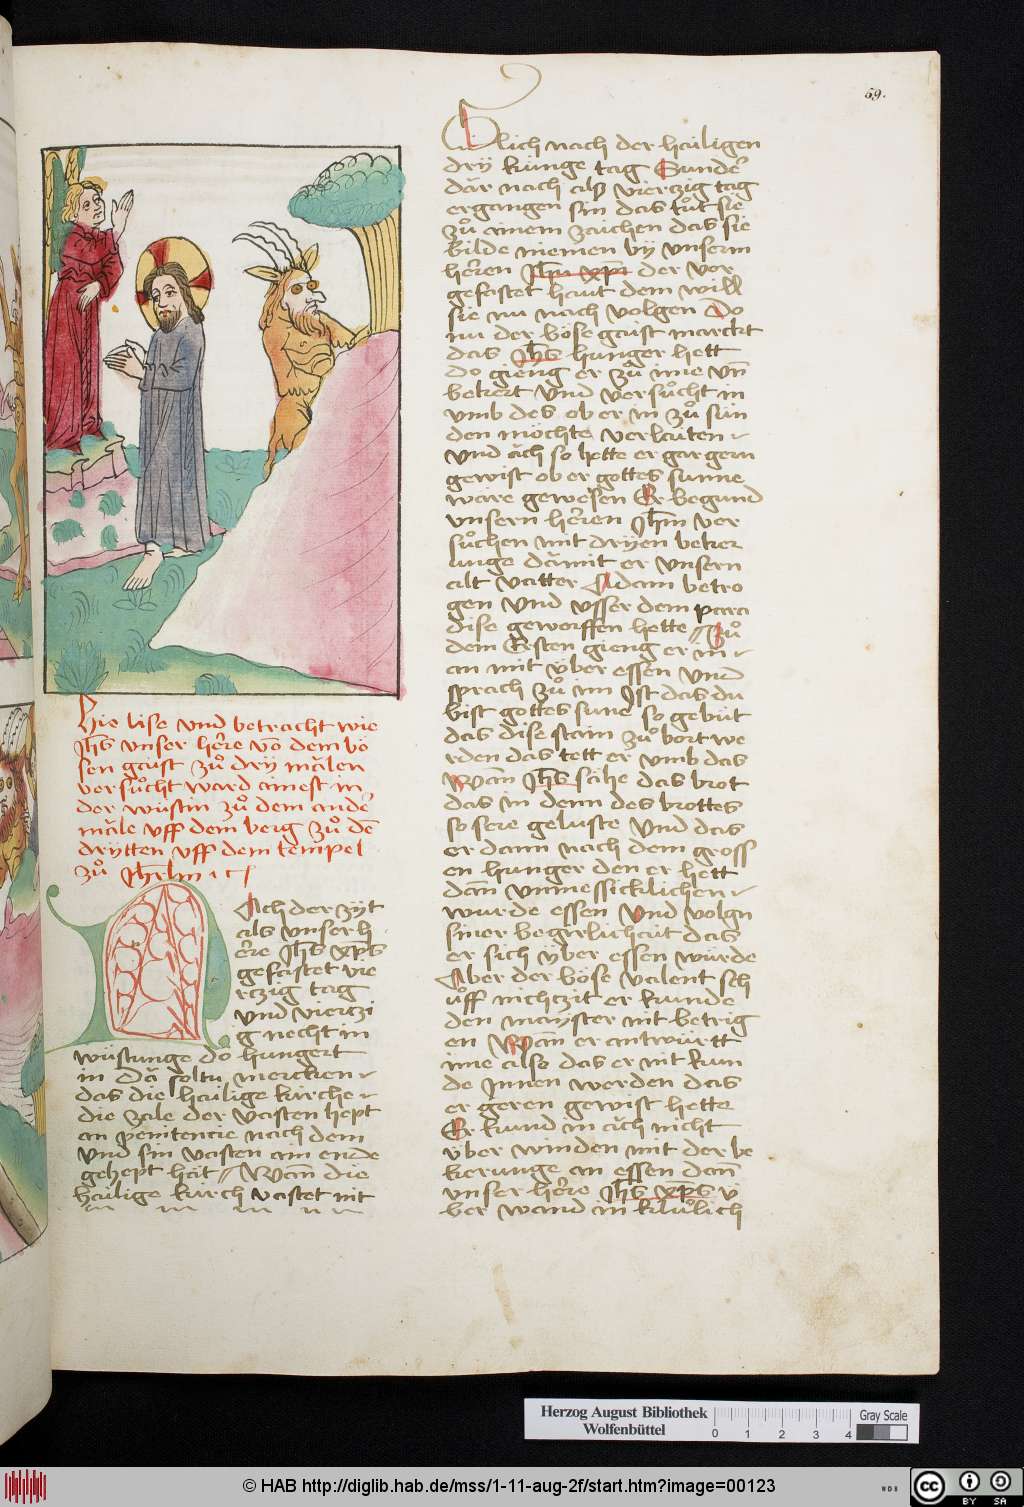 59.
Hie lise vnd betracht wie
Jhs vnser here vō dem bö
sen gaist zů drÿ mālen
versůcht ward ainest in
der wůstin zů dem andē
māle vff dem berg zů dē
drÿtten vff dem tempel
zů Jhrlm
NAch der zÿt
als vnser h
ere Jhs xps
gefastet vie
rczig tag
vnd vierczi
g necht in
wüstunge do hungert
in Dā soltu mercken
das die hailige kirche
die zale der vasten hept
an penitencie nach dem
vnd sin vasten am ende
gehept hāt Wañ die
hailige kirch vastet nit
Glich nach der hailigen
drÿ künge tag Sunder
dār nach alß vierczig tag
ergangen sin das tůt sie
zů ainem zaichen das sie
bilde niemen bÿ vnserm
heren Jhm xpi der vor
gefastet haut dem will
sie nu nach volgen Do
nu der böse gaist marckt
das Jhs hunger hett
do gieng er zů ime vñ
bekert vnd versůcht in
vmb des ob er in zů sün
den möchte verlaiten
vnd āch so hette er gar gern
gewist ob er gottes sunne
ware gewesen Er begund
vnsern heren Jhm ver
sůchen mit drÿen beker
unge dāmit er vnsern
alt vatter Adam betro
gen vnd vsser dem para
dise geworffen hette Zů
dem Ersten gieng er in
an mit über essen vnd
sprach zů im Jst das du
bist gottes sune so gebüt
das dise stain zů brot we
rden das tett er vmb das
Wañ Jhs sähe das brot
das in denn des brottes
so sere geluste vnd das
er dann nach dem gross
en hunger den er hett
dañ vnmessicklichen
wurde essen vnd volgn
siner begirlichait das
er sich über essen würde
Aber der böse valent sch
ůff nichczit er kunde
den mayster nit betrig
en Wañ er antwürtt
ime also das er nit kun
de Jnnen werden das
er geren gewist hette
Er kund in āch nicht
über winden mit der be
kerunge an essen dañ
vnser here Jhs xps ü
ber wand in klůlich
Herzog August Bibliothek
Wolfenbüttel
0 1 2 3 4
Gray Scale
© HAB http://diglib.hab.de/mss/1-11-aug-2f/start.htm?image=00123
WDB
CC BY SA